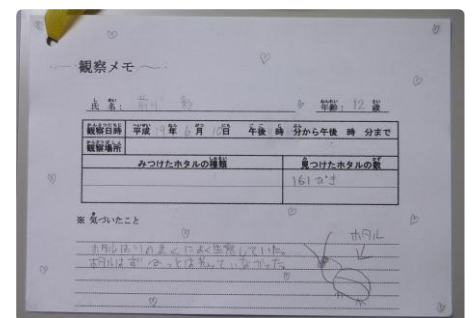 観察メモ
氏名: 年齢: 12 歳
観察日時 平成 19 年 6 月 日 午後 時 分から午後 時 分まで
観察場所
みつけたホタルの種類 見つけたホタルの数
161 ぴき
※ 気づいたこと
ホタル
ホタルは によく生息していた。
ホタルは ずーっとは光っていなかった。